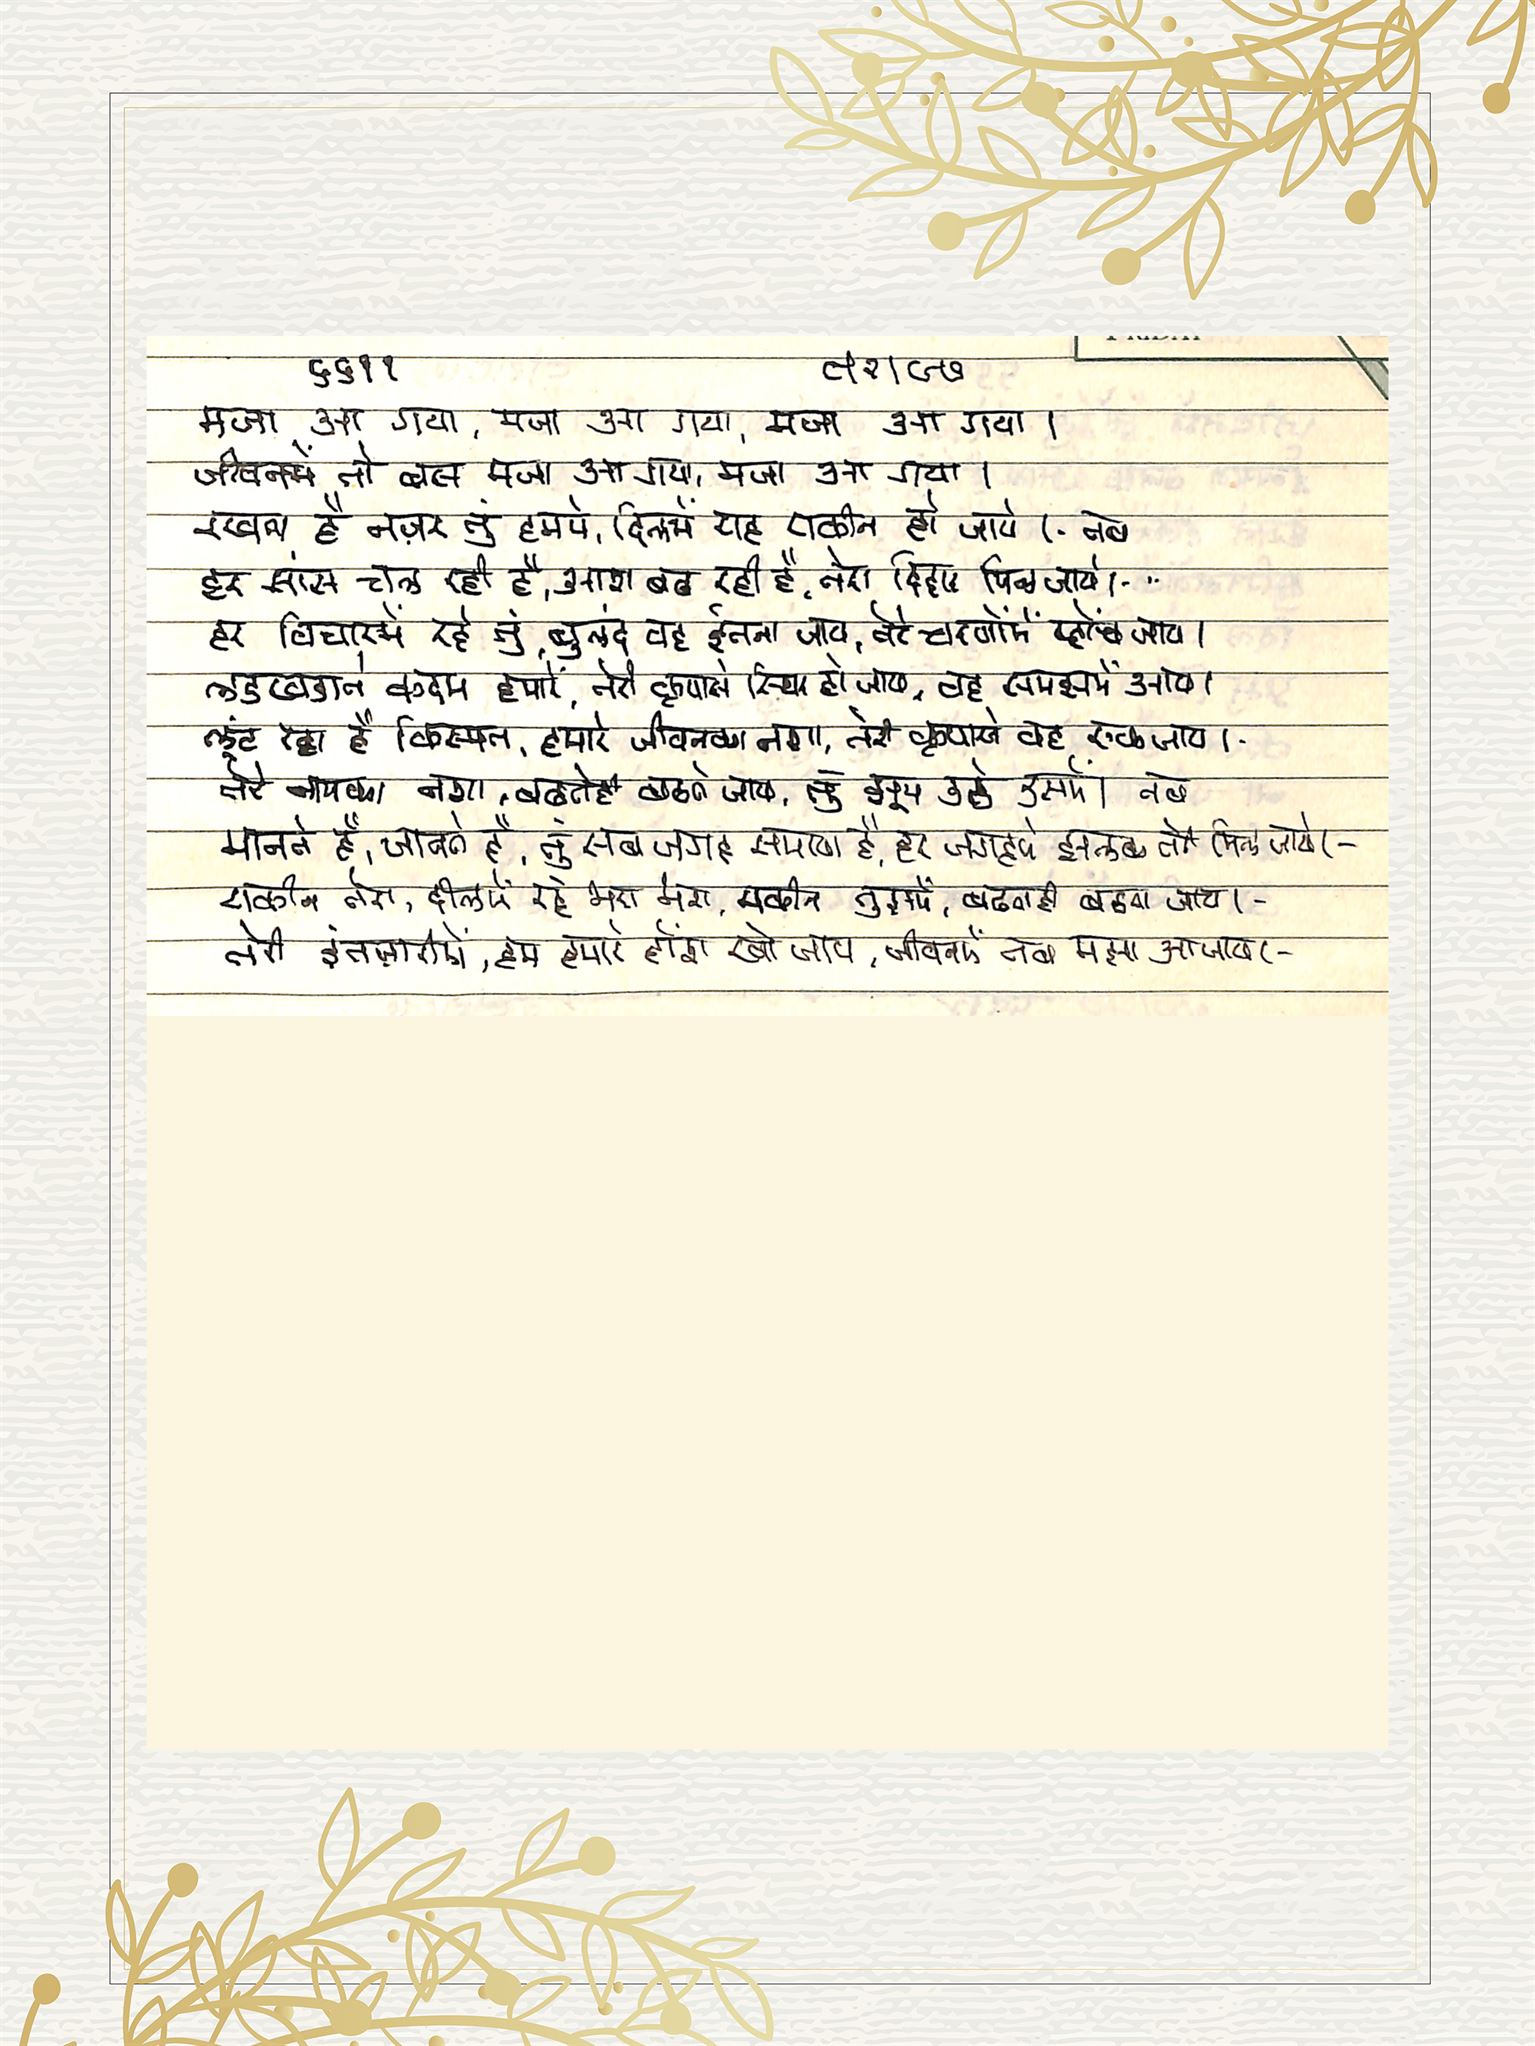 ६६११
FRIDAY
मजा आ गया, मजा आ गया, मजा आ गया ।
जीवनमें तो बस मजा आ गया, मजा आ गया ।
रखता है नज़र तुं हमपे, दिलमें यह यकीन हो जाये ।- तब
हर सांस चल रही है, आश बढ रही है, तेरा दिदार मिल जाये ।- ..
हर विचारमें रहे तुं, बुलंद वह ईतना जाय, तेरे चरणोंमें जाय ।
लडखडाते कदम हमारे, तेरी कृपासे स्थिर हो जाय, वह समझमें आय ।
लूंट रहा है किस्मत, हमारे जीवनका नशा, तेरी कृपासे वह रुक जाय ।-
तेरे नामका नशा, बढतेही बढते जाय, तुं झूम उठे उसमें । तब
मानते है, जानते है, तुं सब जगह समाया है, हर जगहपे झलक तेरी मिल जाये ।-
यकीन तेरा, दीलमें रहे भरा भरा, यकीन तुझमें, बढताही बढता जाय ।-
तेरी इंतज़ारीमें, हम हमारे होंश खो जाय, जीवनमें तब मझा आ जाय ।-